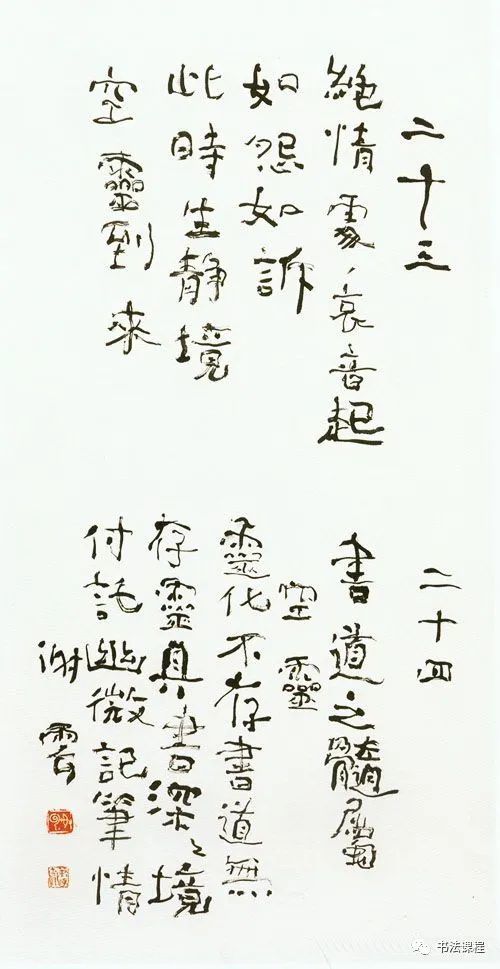 二十三
絕情處ヽ哀音起
如怨如訴
此時生靜境
空靈到來
二十四
書道之髓屬
空靈
靈化不存書道無
存靈真書深々境
付託幽微記筆情
謝雲
书法课程